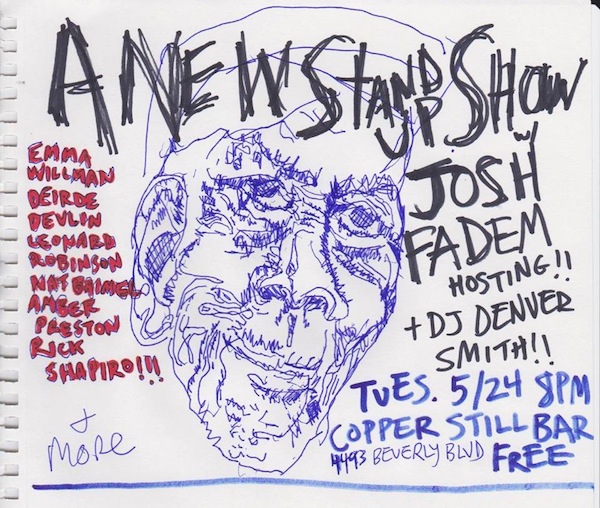 A NEW STAND UP SHOW
w/
JOSH
FADEM
HOSTING!!
+ DJ DENVER
SMITH!!
TUES. 5/24 8PM
COPPER STILL BAR
4493 BEVERLY BLVD FREE
EMMA
WILLMAN
DEIRDE
DEVLIN
LEONARD
ROBINSON
NAT BAIMEL
AMBER
PRESTON
RICK
SHAPIRO!!!
+
MORE